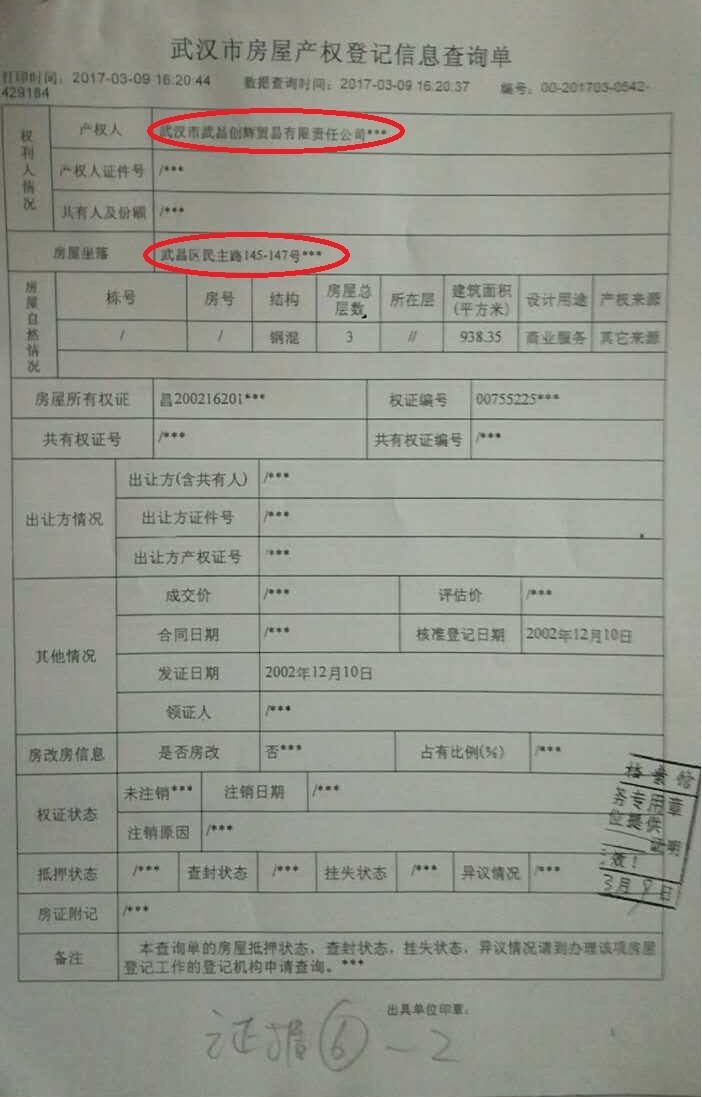 武汉市房屋产权登记信息查询单
打印时间：2017-03-09 16:20:44 数据查询时间：2017-03-09 16:20:37 编号：00-201703-0542-
429184
权利人情况
产权人 武汉市武昌创辉贸易有限责任公司***
产权人证件号 /***
共有人及份额 /***
房屋坐落 武昌区民主路145-147号***
房屋自然情况
栋号 房号 结构 房屋总层数 所在层 建筑面积(平方米) 设计用途 产权来源
/ / 钢混 3 // 938.35 商业服务 其它来源
房屋所有权证 昌200216201*** 权证编号 00755225***
共有权证号 /*** 共有权证编号 /***
出让方情况
出让方(含共有人) /***
出让方证件号 /***
出让方产权证号 /***
其他情况
成交价 /*** 评估价 /***
合同日期 /*** 核准登记日期 2002年12月10日
发证日期 2002年12月10日
领证人 /***
房改房信息 是否房改 否*** 占有比例(%) /***
权证状态
未注销*** 注销日期 /***
注销原因 /***
抵押状态 /*** 查封状态 /*** 挂失状态 /*** 异议情况 /***
房证附记 /***
备注 本查询单的房屋抵押状态，查封状态，挂失状态，异议情况请到办理该项房屋
登记工作的登记机构申请查询。***
出具单位印章：
档案馆
务专用章
位提供
证明
效！
3月9日
证据⑥-2